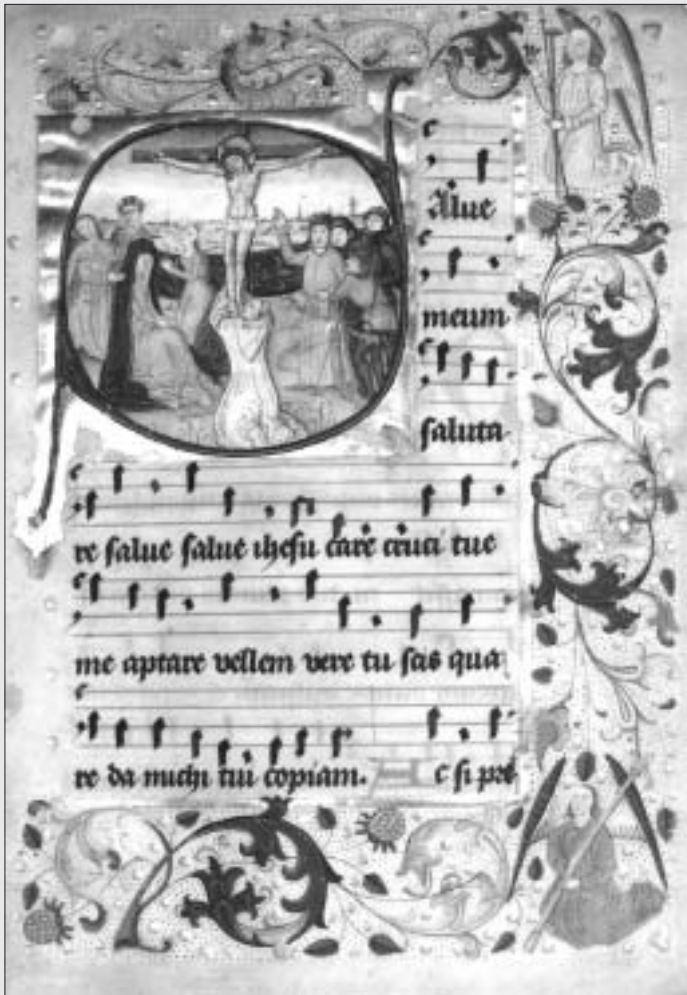 Alue
meum
saluta
re salue salue ihesu care cruci tue
me aptare vellem vere tu scis qua
re da michi tui copiam. Ac si pre